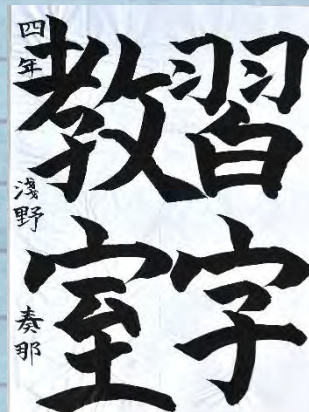 習字
教室
四年 淺野 奏那